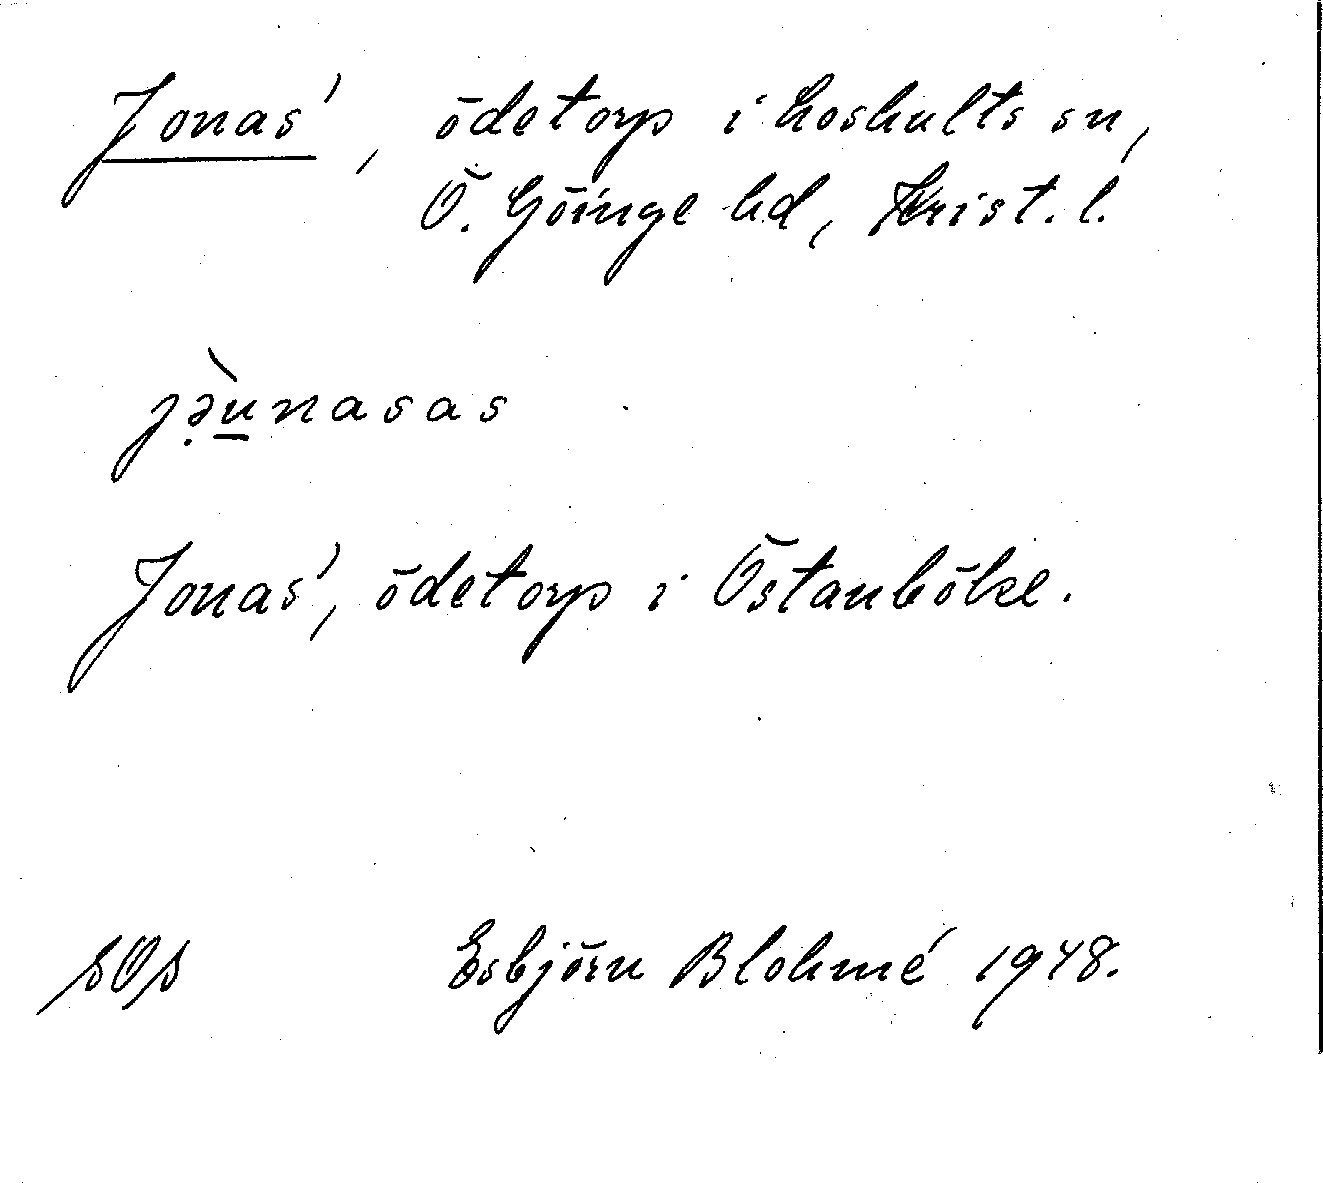 Jonas', ödetorp i Loshults sn,
Ö. Göinge hd, Krist. l.
jə̣̀u̲nasas
Jonas', ödetorp i Östanböke.
SOS Esbjörn Blohmé 1948.